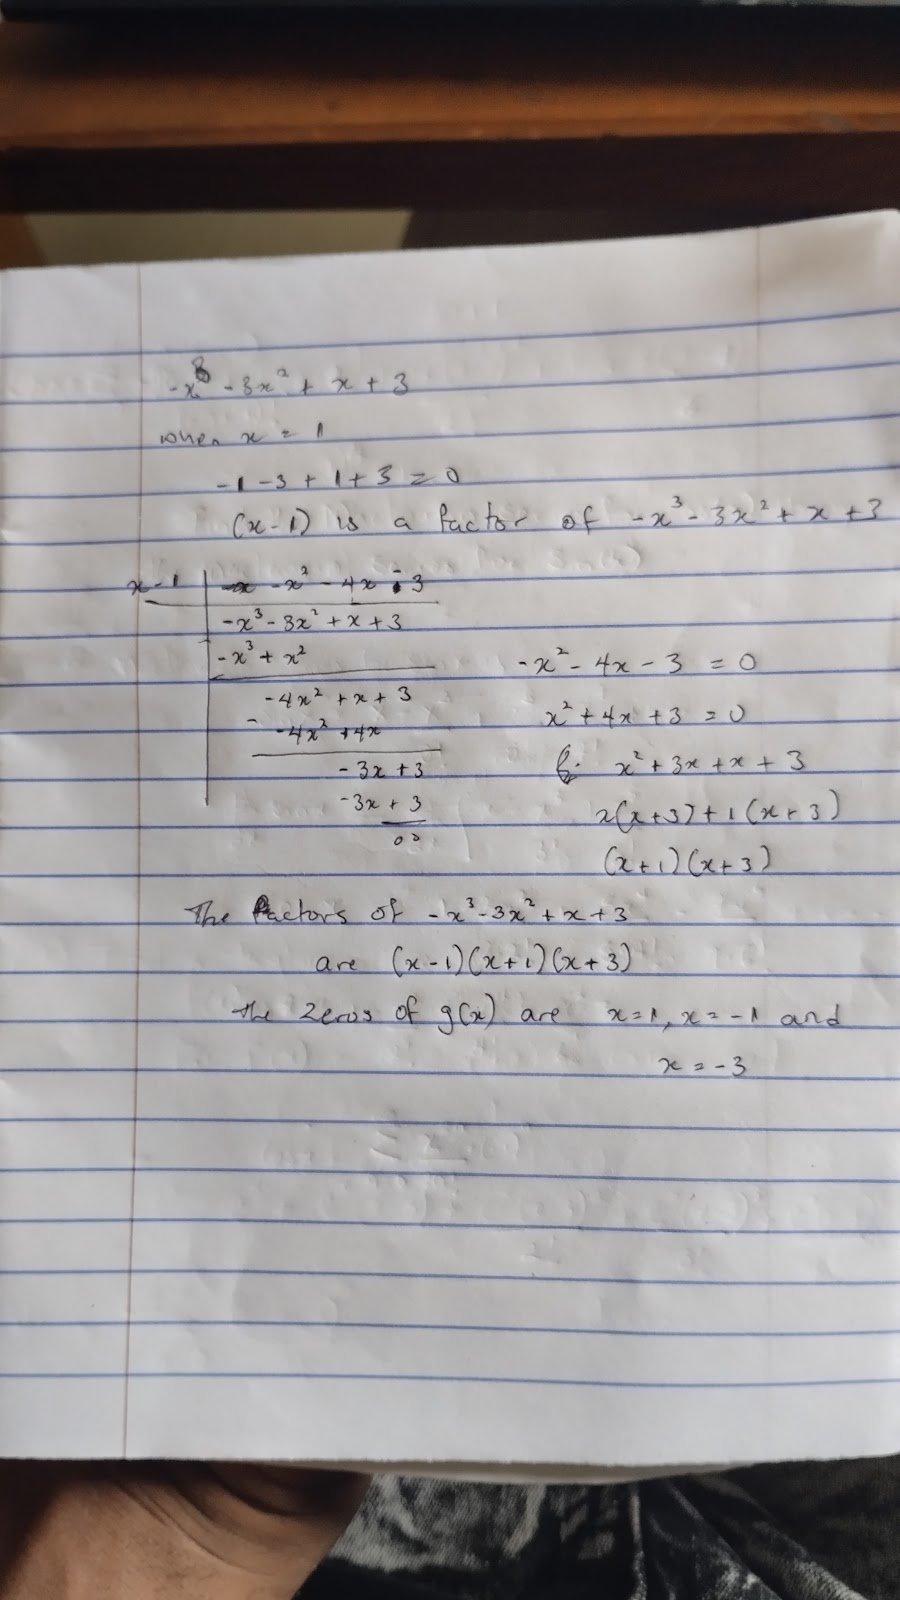 -x³ - 3x² + x + 3
when x = 1
-1 - 3 + 1 + 3 = 0
(x-1) is a factor of -x³ - 3x² + x + 3
x-1 -x² - 4x - 3
-x³ - 3x² + x + 3
-x³ + x²
-4x² + x + 3
- -4x² + 4x
-3x + 3
-3x + 3
00
-x² - 4x - 3 = 0
x² + 4x + 3 = 0
x² + 3x + x + 3
x(x+3) + 1(x+3)
(x+1)(x+3)
The Factors of -x³ - 3x² + x + 3
are (x-1)(x+1)(x+3)
the zeros of g(x) are x=1, x=-1 and
x = -3